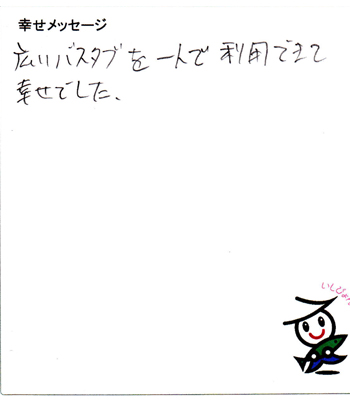 幸せメッセージ
広いバスタブを一人で利用できて
幸せでした。